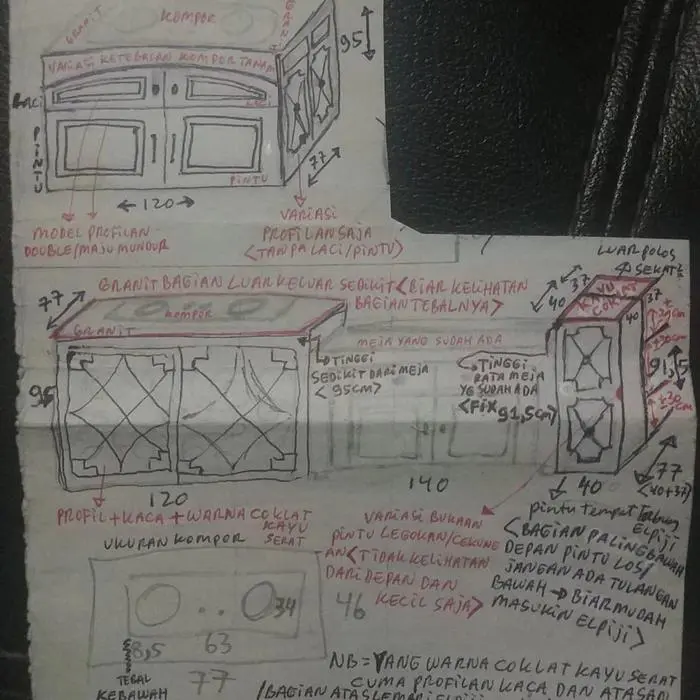 GRANIT
KOMPOR
GRAN
VARIASI KETEBALAN KOMPOR TANAM
LACI
LACI
PINTU
PINTU
95
77
120
MODEL PROFILAN
DOUBLE/MAJU MUNDUR
VARIASI
PROFILAN SAJA
<TANPA LACI/PINTU>
GRANIT BAGIAN LUAR KELUAR SEDIKIT <BIAR KELIHATAN
BAGIAN TEBALNYA>
77
KOMPOR
GRANIT
MEJA YANG SUDAH ADA
TINGGI
SEDIKIT DARI MEJA
<95CM>
TINGGI
RATA MEJA
YG SUDAH ADA
<FIX 91,5cm>
LUAR POLOS
37
40
KAYU
COKLAT
37
40
±30cm
91,5
±30
cm
77
<40+37>
95
120
140
40
PROFIL+KACA+WARNA COKLAT
KAYU
SERAT
UKURAN KOMPOR
VARIASI BUKAAN
PINTU LEGOKAN/CEKUNG
AN <TIDAK KELIHATAN
DARI DEPAN DAN
KECIL SAJA>
46
PINTU TEMPAT TABUNG
ELPIJI
<BAGIAN PALING BAWAH
DEPAN PINTU LOS/
JANGAN ADA TULANGAN
BAWAH → BIAR MUDAH
MASUKIN ELPIJI>
34
8,5
63
77
TEBAL
KEBAWAH
NB = YANG WARNA COKLAT KAYU SERAT
CUMA PROFILAN KACA DAN ATASAN